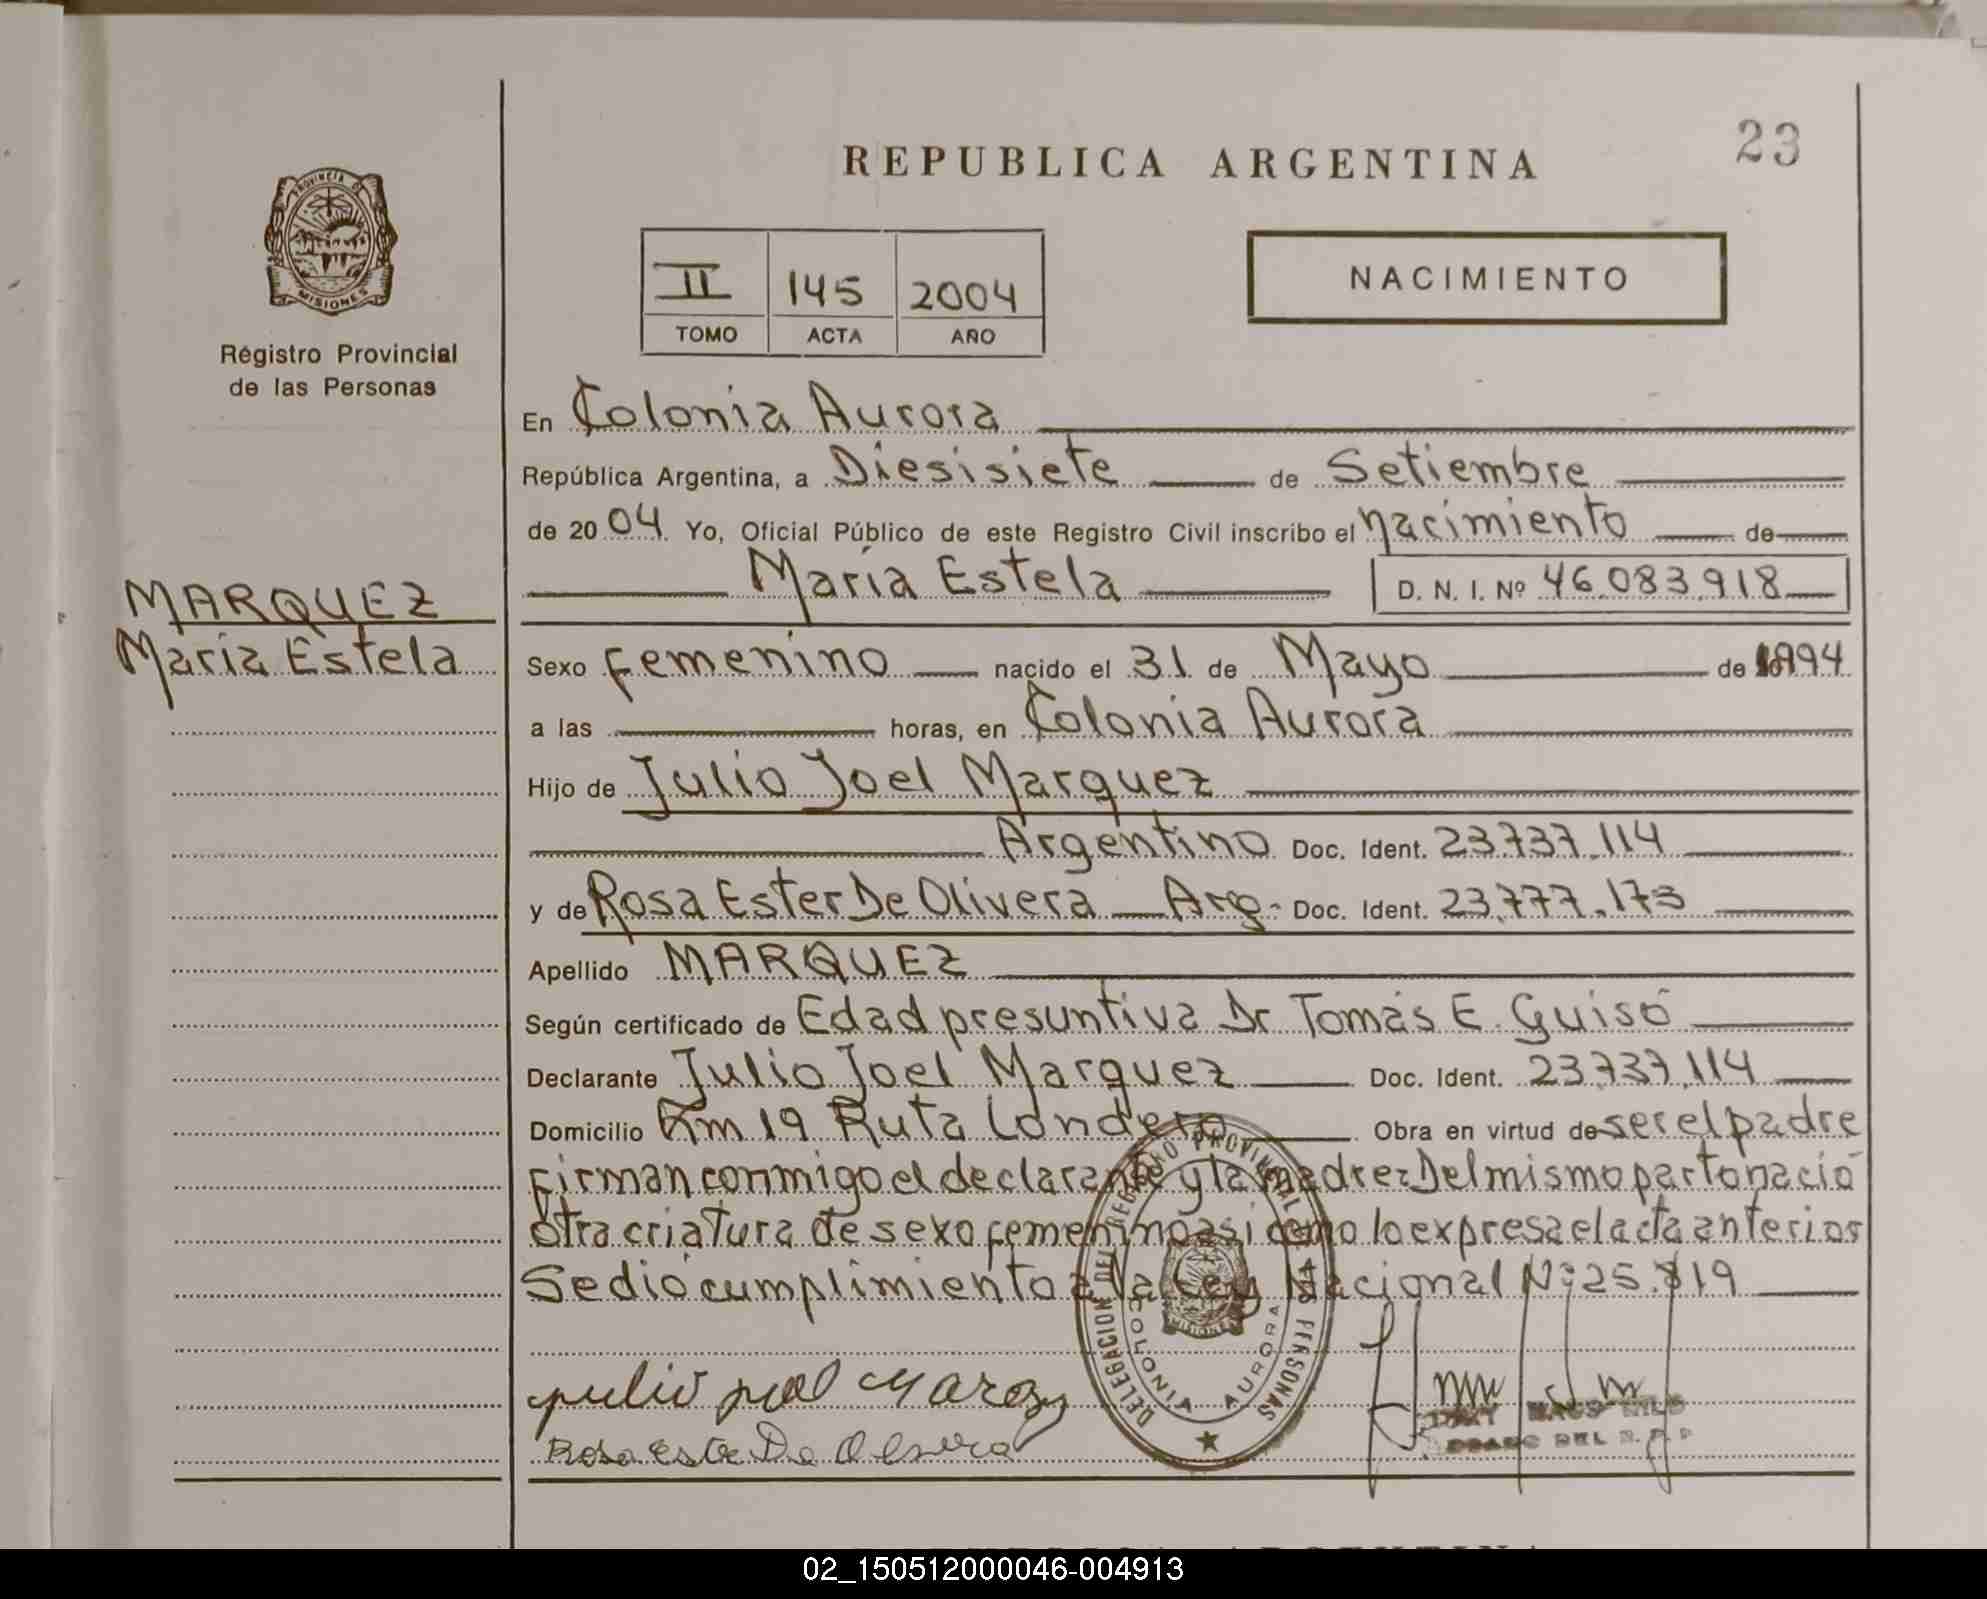 23
REPUBLICA ARGENTINA
PROVINCIA DE
MISIONES
Régistro Provincial
de las Personas
II 145 2004
TOMO ACTA AÑO
NACIMIENTO
En Colonia Aurora
República Argentina, a Diesisiete de Setiembre
de 2004 Yo, Oficial Público de este Registro Civil inscribo el nacimiento de
María Estela D. N. I. Nº 46.083.918
MARQUEZ
María Estela
Sexo femenino nacido el 31 de Mayo de 1994
a las horas, en Colonia Aurora
Hijo de Julio Joel Marquez
Argentino Doc. Ident. 23.737.114
y de Rosa Ester De Olivera Arg- Doc. Ident. 23.777.173
Apellido MARQUEZ
Según certificado de Edad presuntiva Dr Tomás E. Guisó
Declarante Julio Joel Marquez Doc. Ident. 23.737.114
Domicilio Km 19 Ruta Londero Obra en virtud de ser el padre
firman conmigo el declarante y la madre= Del mismo parto nació
otra criatura de sexo femenino asi como lo expresa el acta anterior
Se dió cumplimiento a la Ley Nacional Nº 25.819
DELEGACION DEL REGISTRO PROVINCIAL DE LAS PERSONAS
COLONIA AURORA
MISIONES
Julio Joel Marqz
Rosa Este De Olivera
DEL R. P. P
02_150512000046-004913